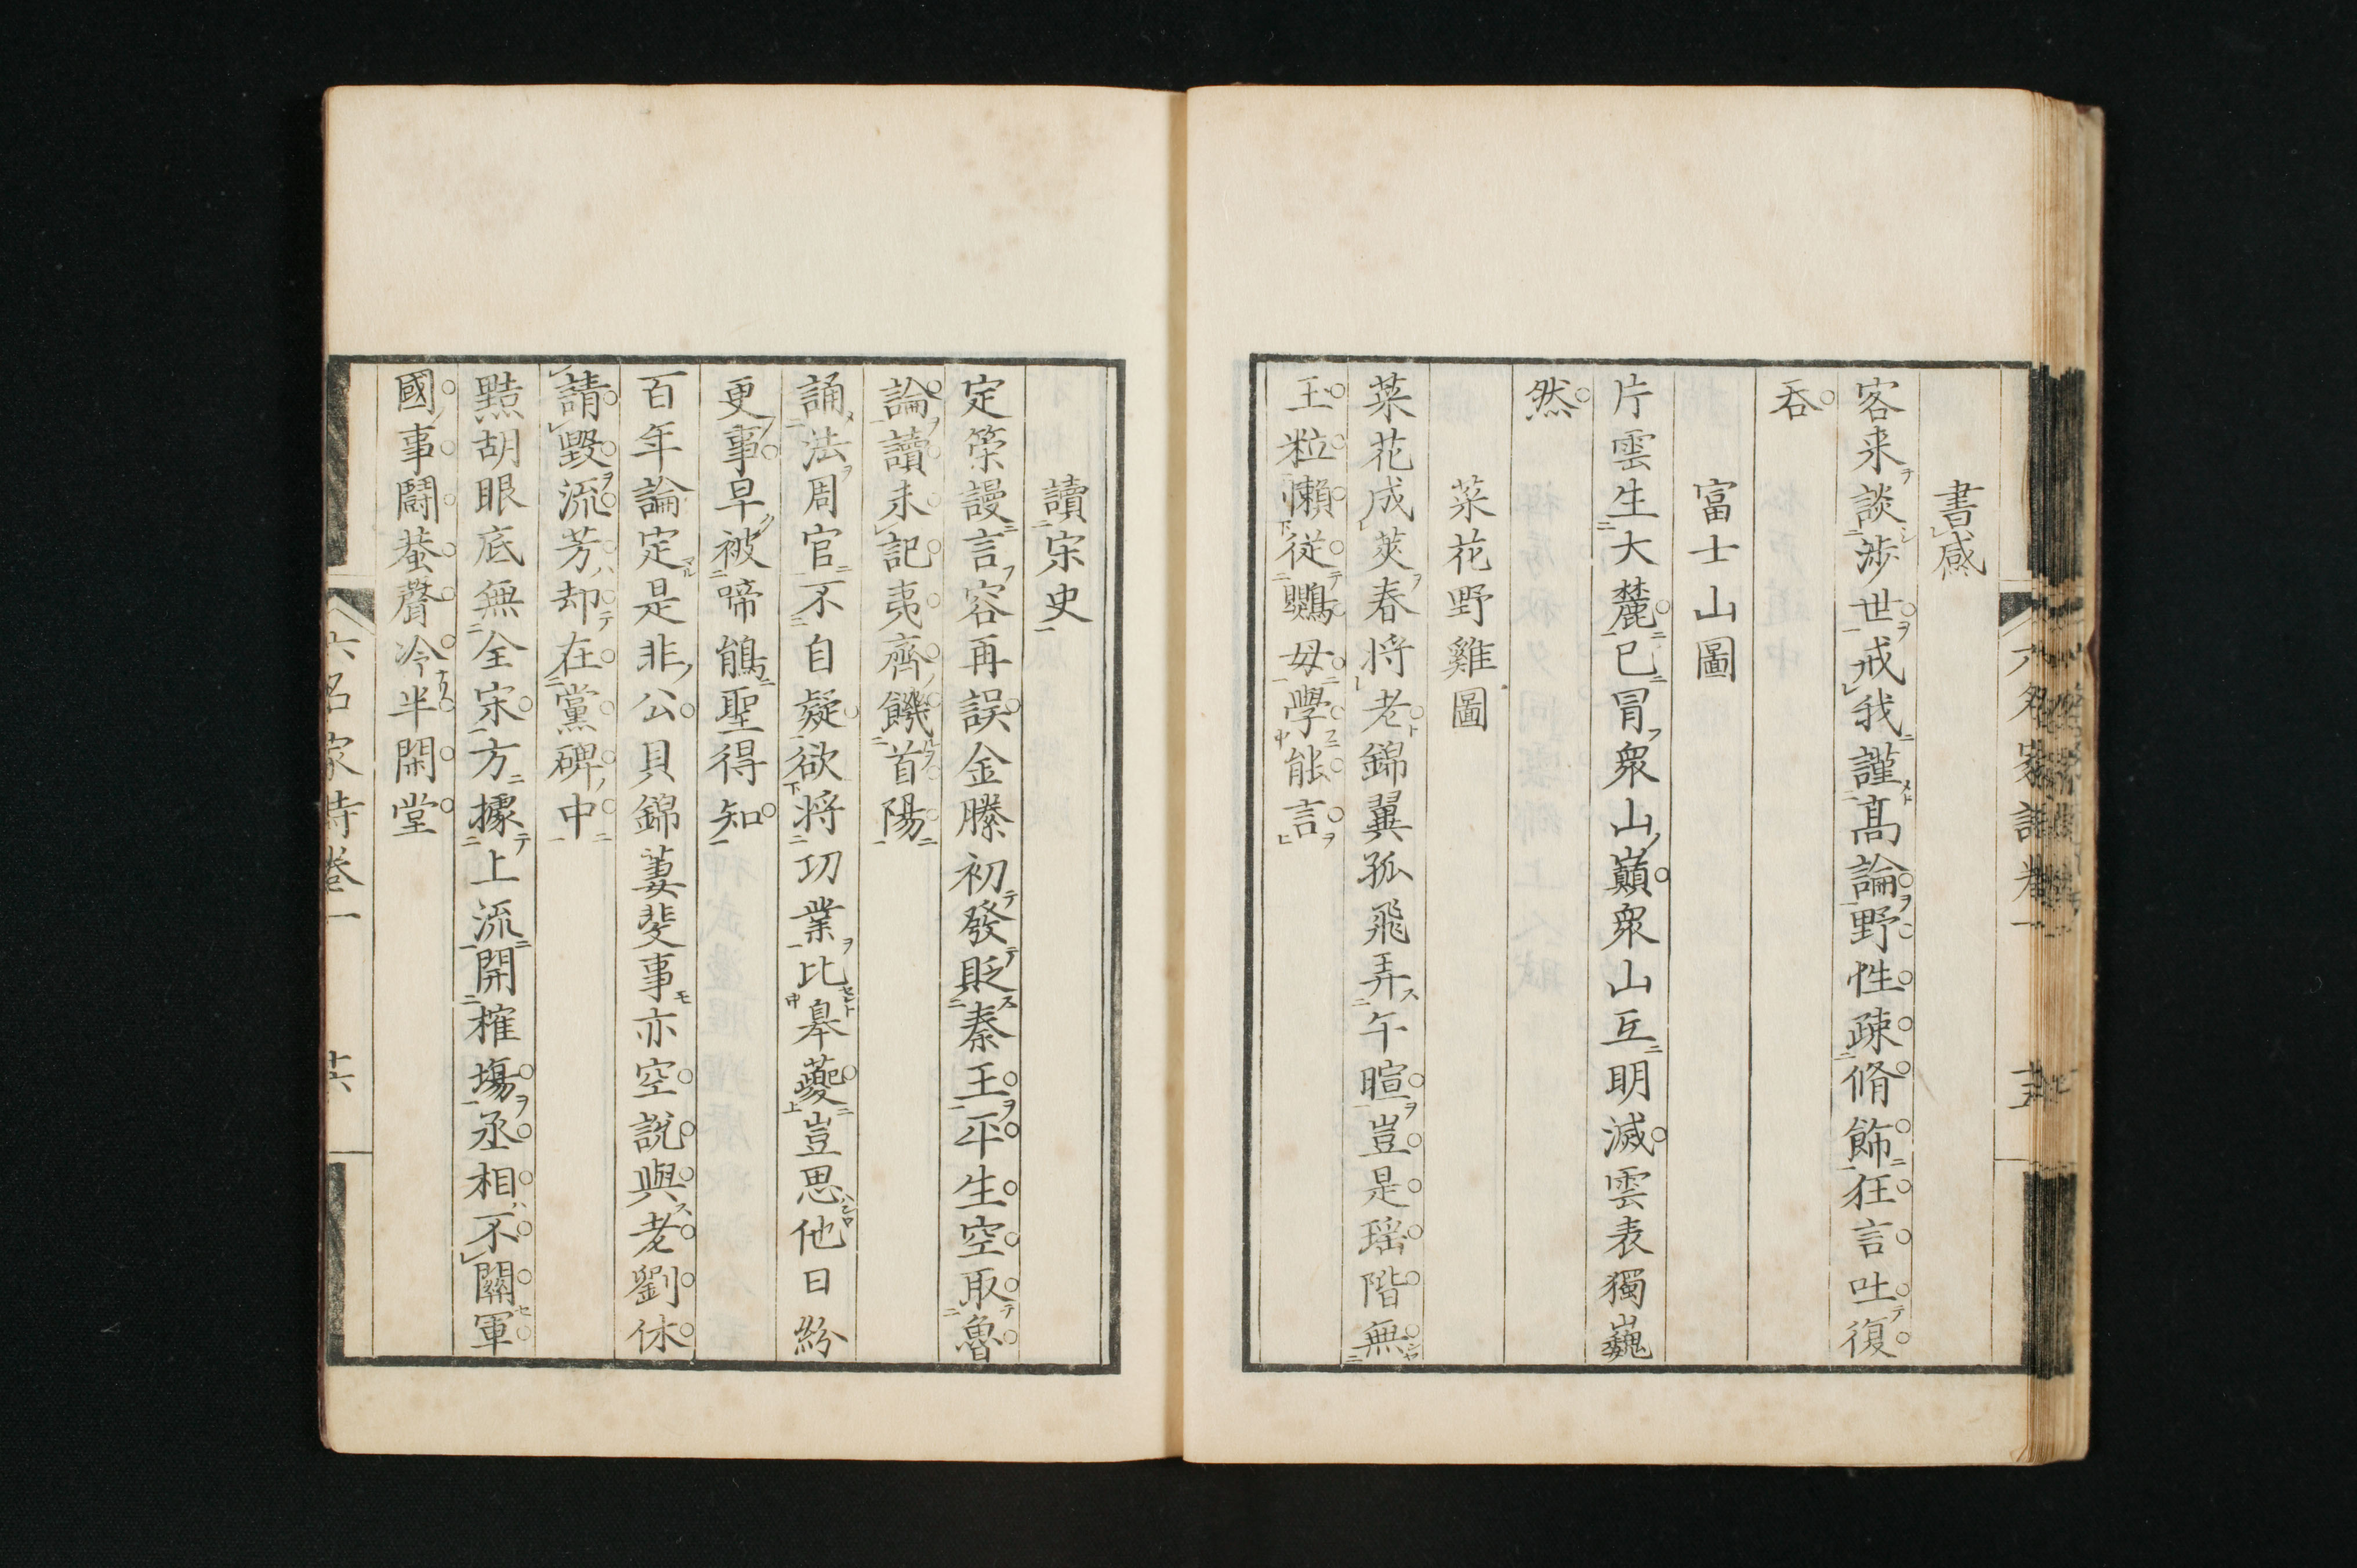 書感
客来談渉世戒我謹髙論野性疎脩飾狂言吐復
呑
富士山圖
片雲生大麓已冒衆山巓衆山互明滅雲表獨巍
然
菜花野雞圖
菜花成莢春将老錦翼孤飛弄午暄豈是瑶階無
玉粒懶従鸚母學能言
讀宋史
定策謾言容再誤金縢初發貶秦王平生空取魯
論讀未記夷齊餓首陽
誦法周官不自疑欲将功業比皋夔豈思他日紛
更事早被啼鵑聖得知
百年論定是非公貝錦萋斐事亦空説與老劉休
請毀流芳却在黨碑中
黠胡眼底無全宋方據上流開榷塲丞相不關軍
國事鬪蛬聲冷半閑堂
六名家詩卷一
六名家詩卷一
十六